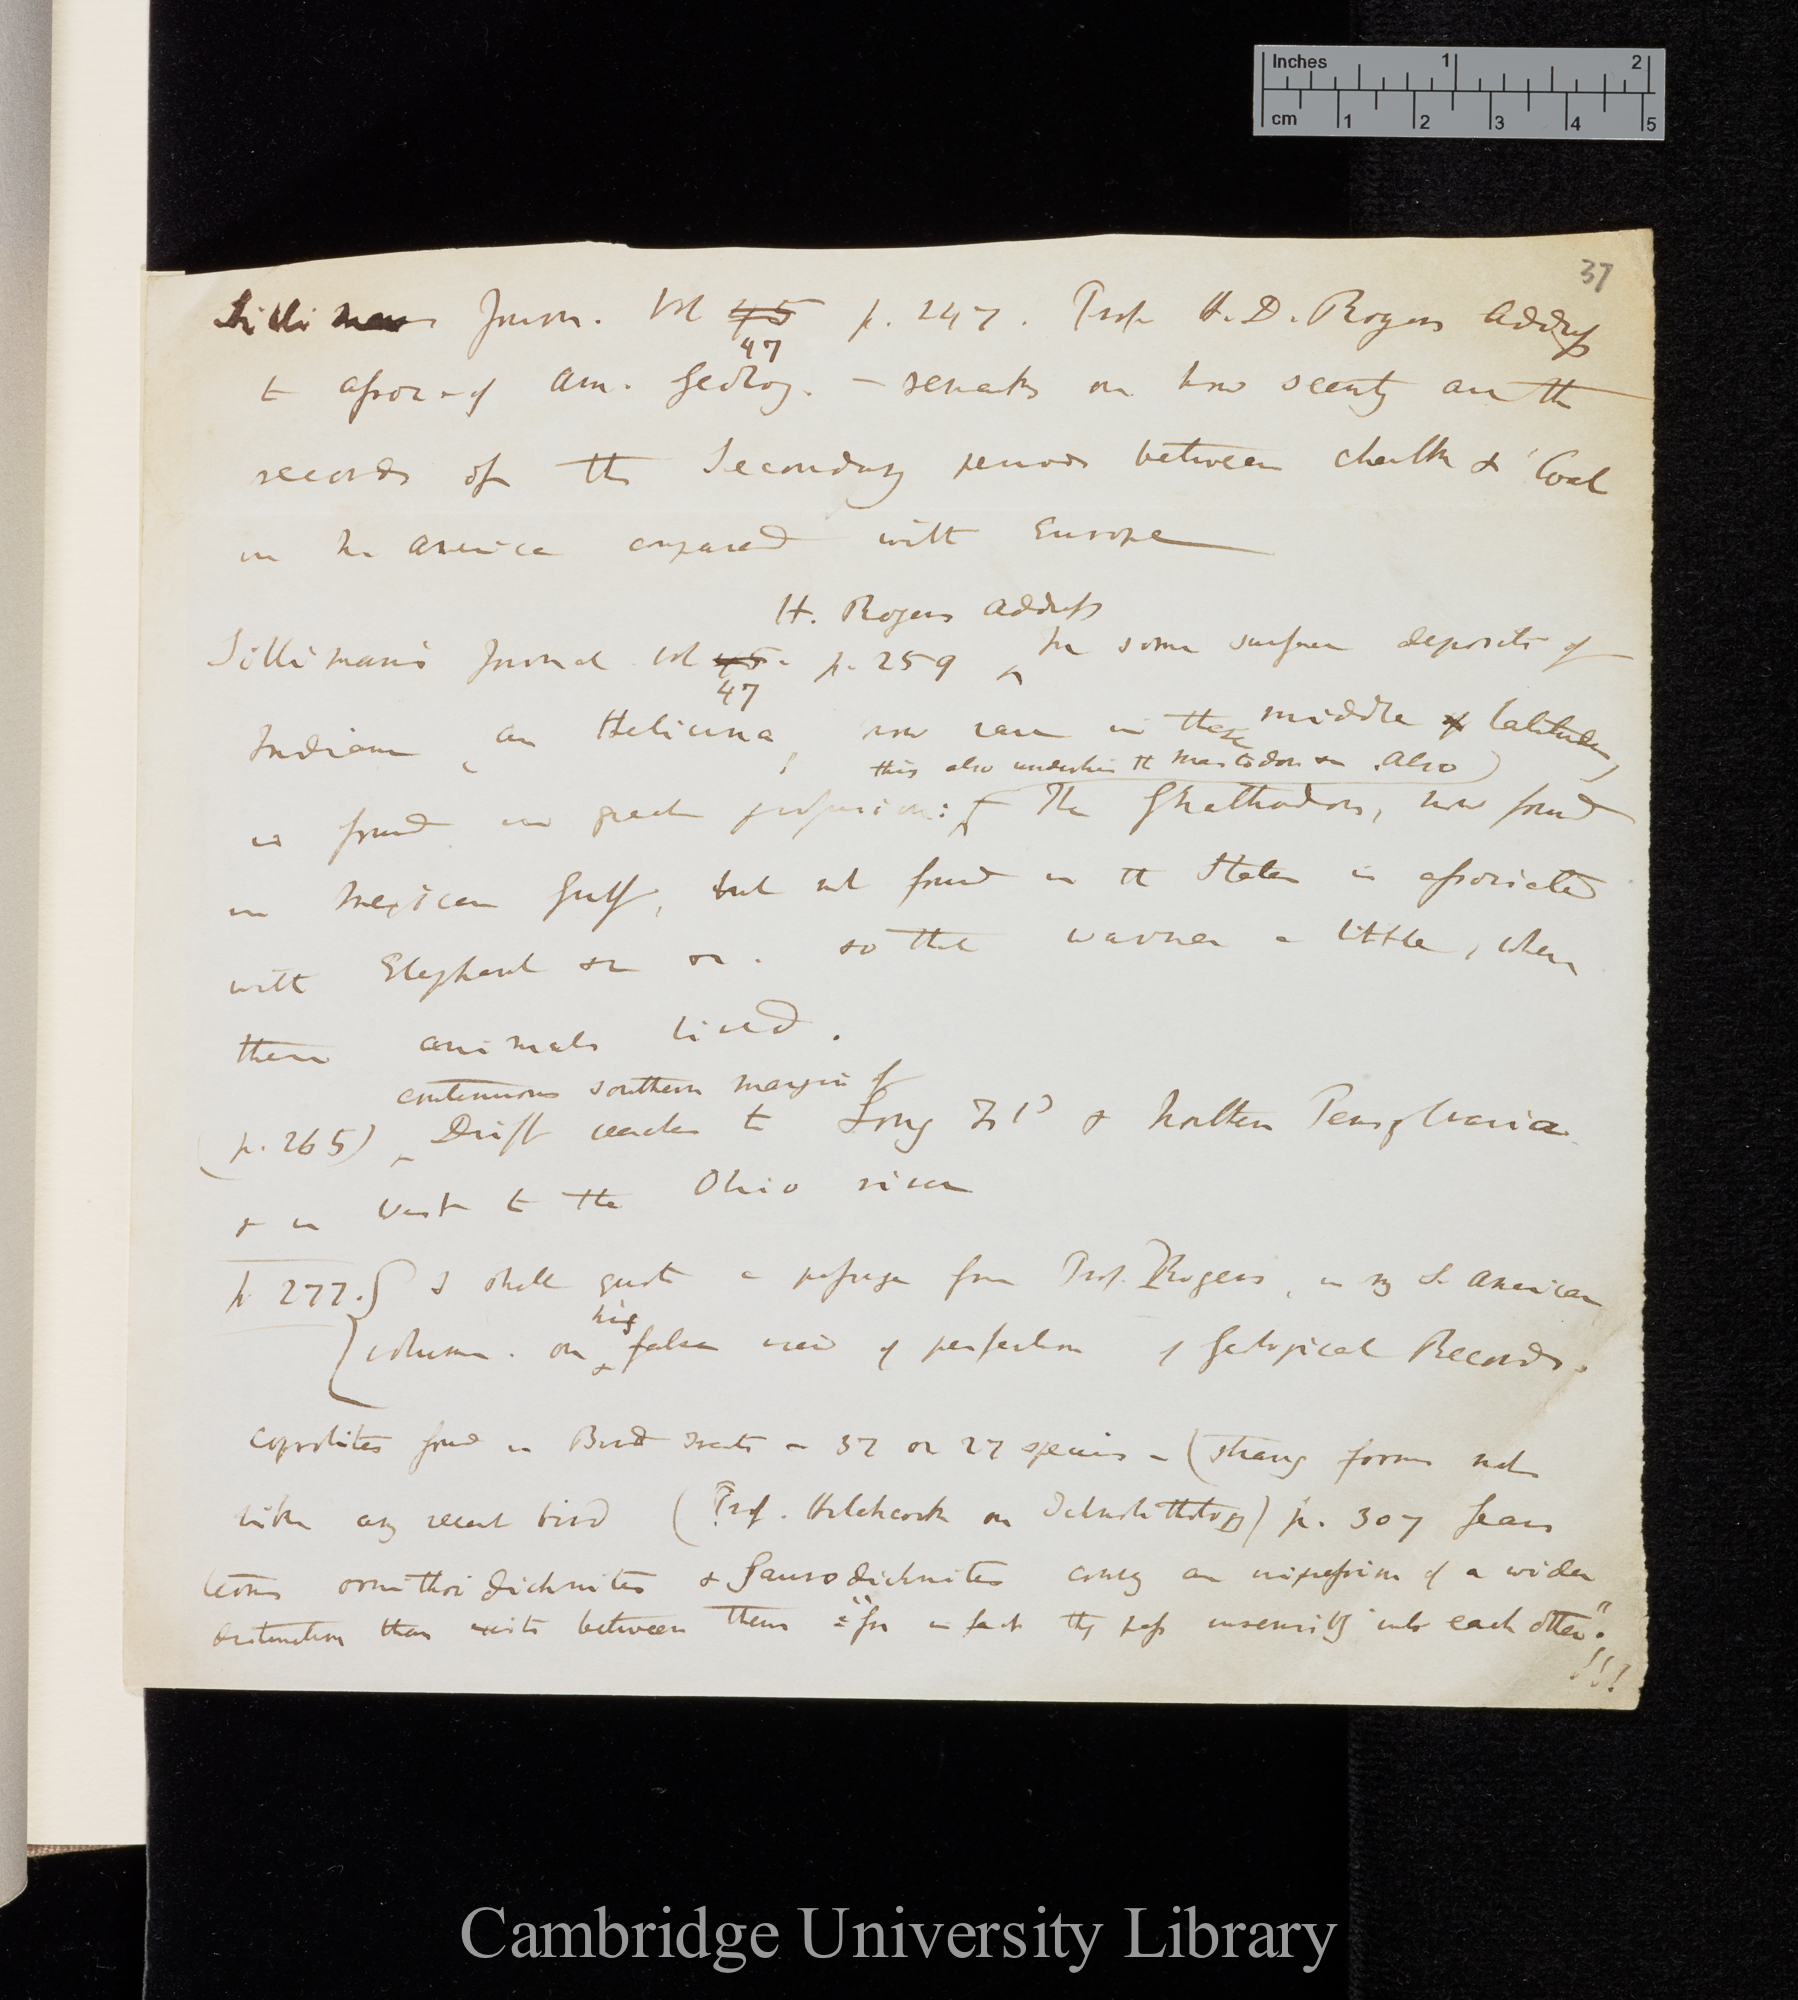 Inches 1 2
cm 1 2 3 4 5
37
Silliman's Journ. Vol 45 p. 247. Prof H. D. Rogers Address
47
to Assoc. of Am. Geolog. – remarks on how scanty are the
records of the Secondary period between chalk & Coal
in N. America compared with Europe
H. Rogers Address
Silliman's Journal Vol 45. p. 259 ^ In some surface deposits of
47
Indiana, an Helicina, now rare in these middle latitudes,
this also underlies the Mastodon &c. also)
is found in great profusion: The Gnathodon, now found
in Mexican Gulf, but not found in the States is associated
with Elephant &c &c. so that warmer a little, when
these animals lived.
continuous southern margin of
(p. 265) ^ Drift reaches to Long Isld & Northern Pensylvania
& in West to the Ohio river
p 277. I shall quote a passage from Prof. Rogers, in my S. American
his
volume. on ^ false view of perfection of Geological Records.
Coprolites found in Bird tracts – 37 or 27 species – (strange forms not
like any recent bird (Prof. Hitchcock on Ichnolithology) p. 307 fears
terms ornithoidichnites & Saurodichnites convey an impression of a wider
distinction than exists between them "for in fact they pass insensibly into each other".
!!!
Cambridge University Library